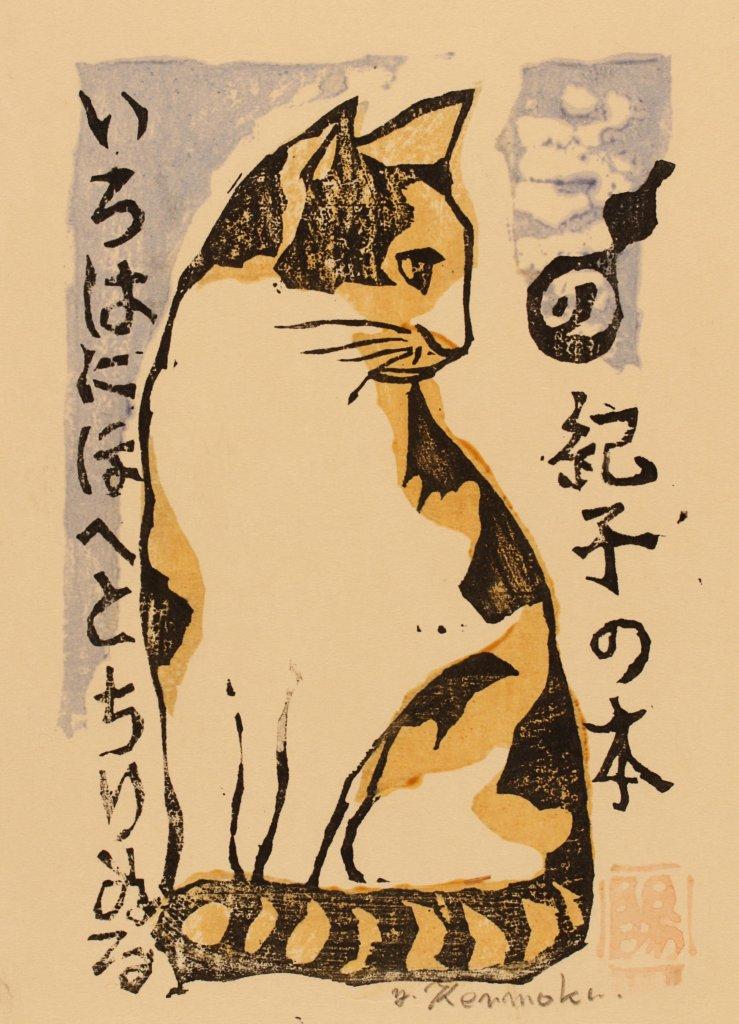 の
紀子の本
いろはにほへとちりぬる
y. Kenmoku.